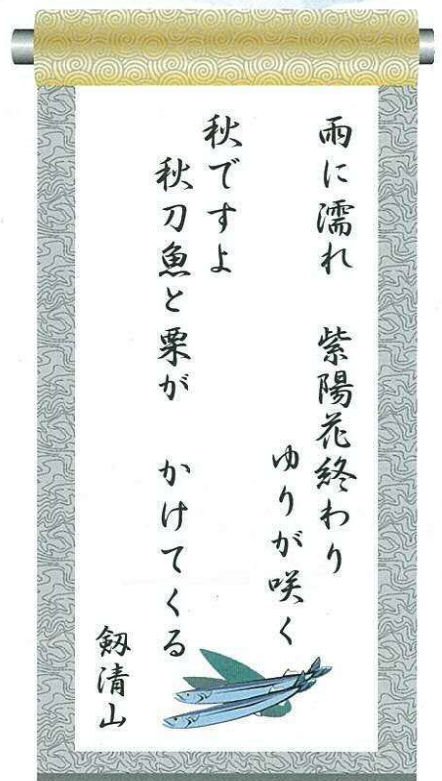 雨に濡れ　紫陽花終わり
ゆりが咲く
秋ですよ
秋刀魚と栗が　かけてくる
剱清山